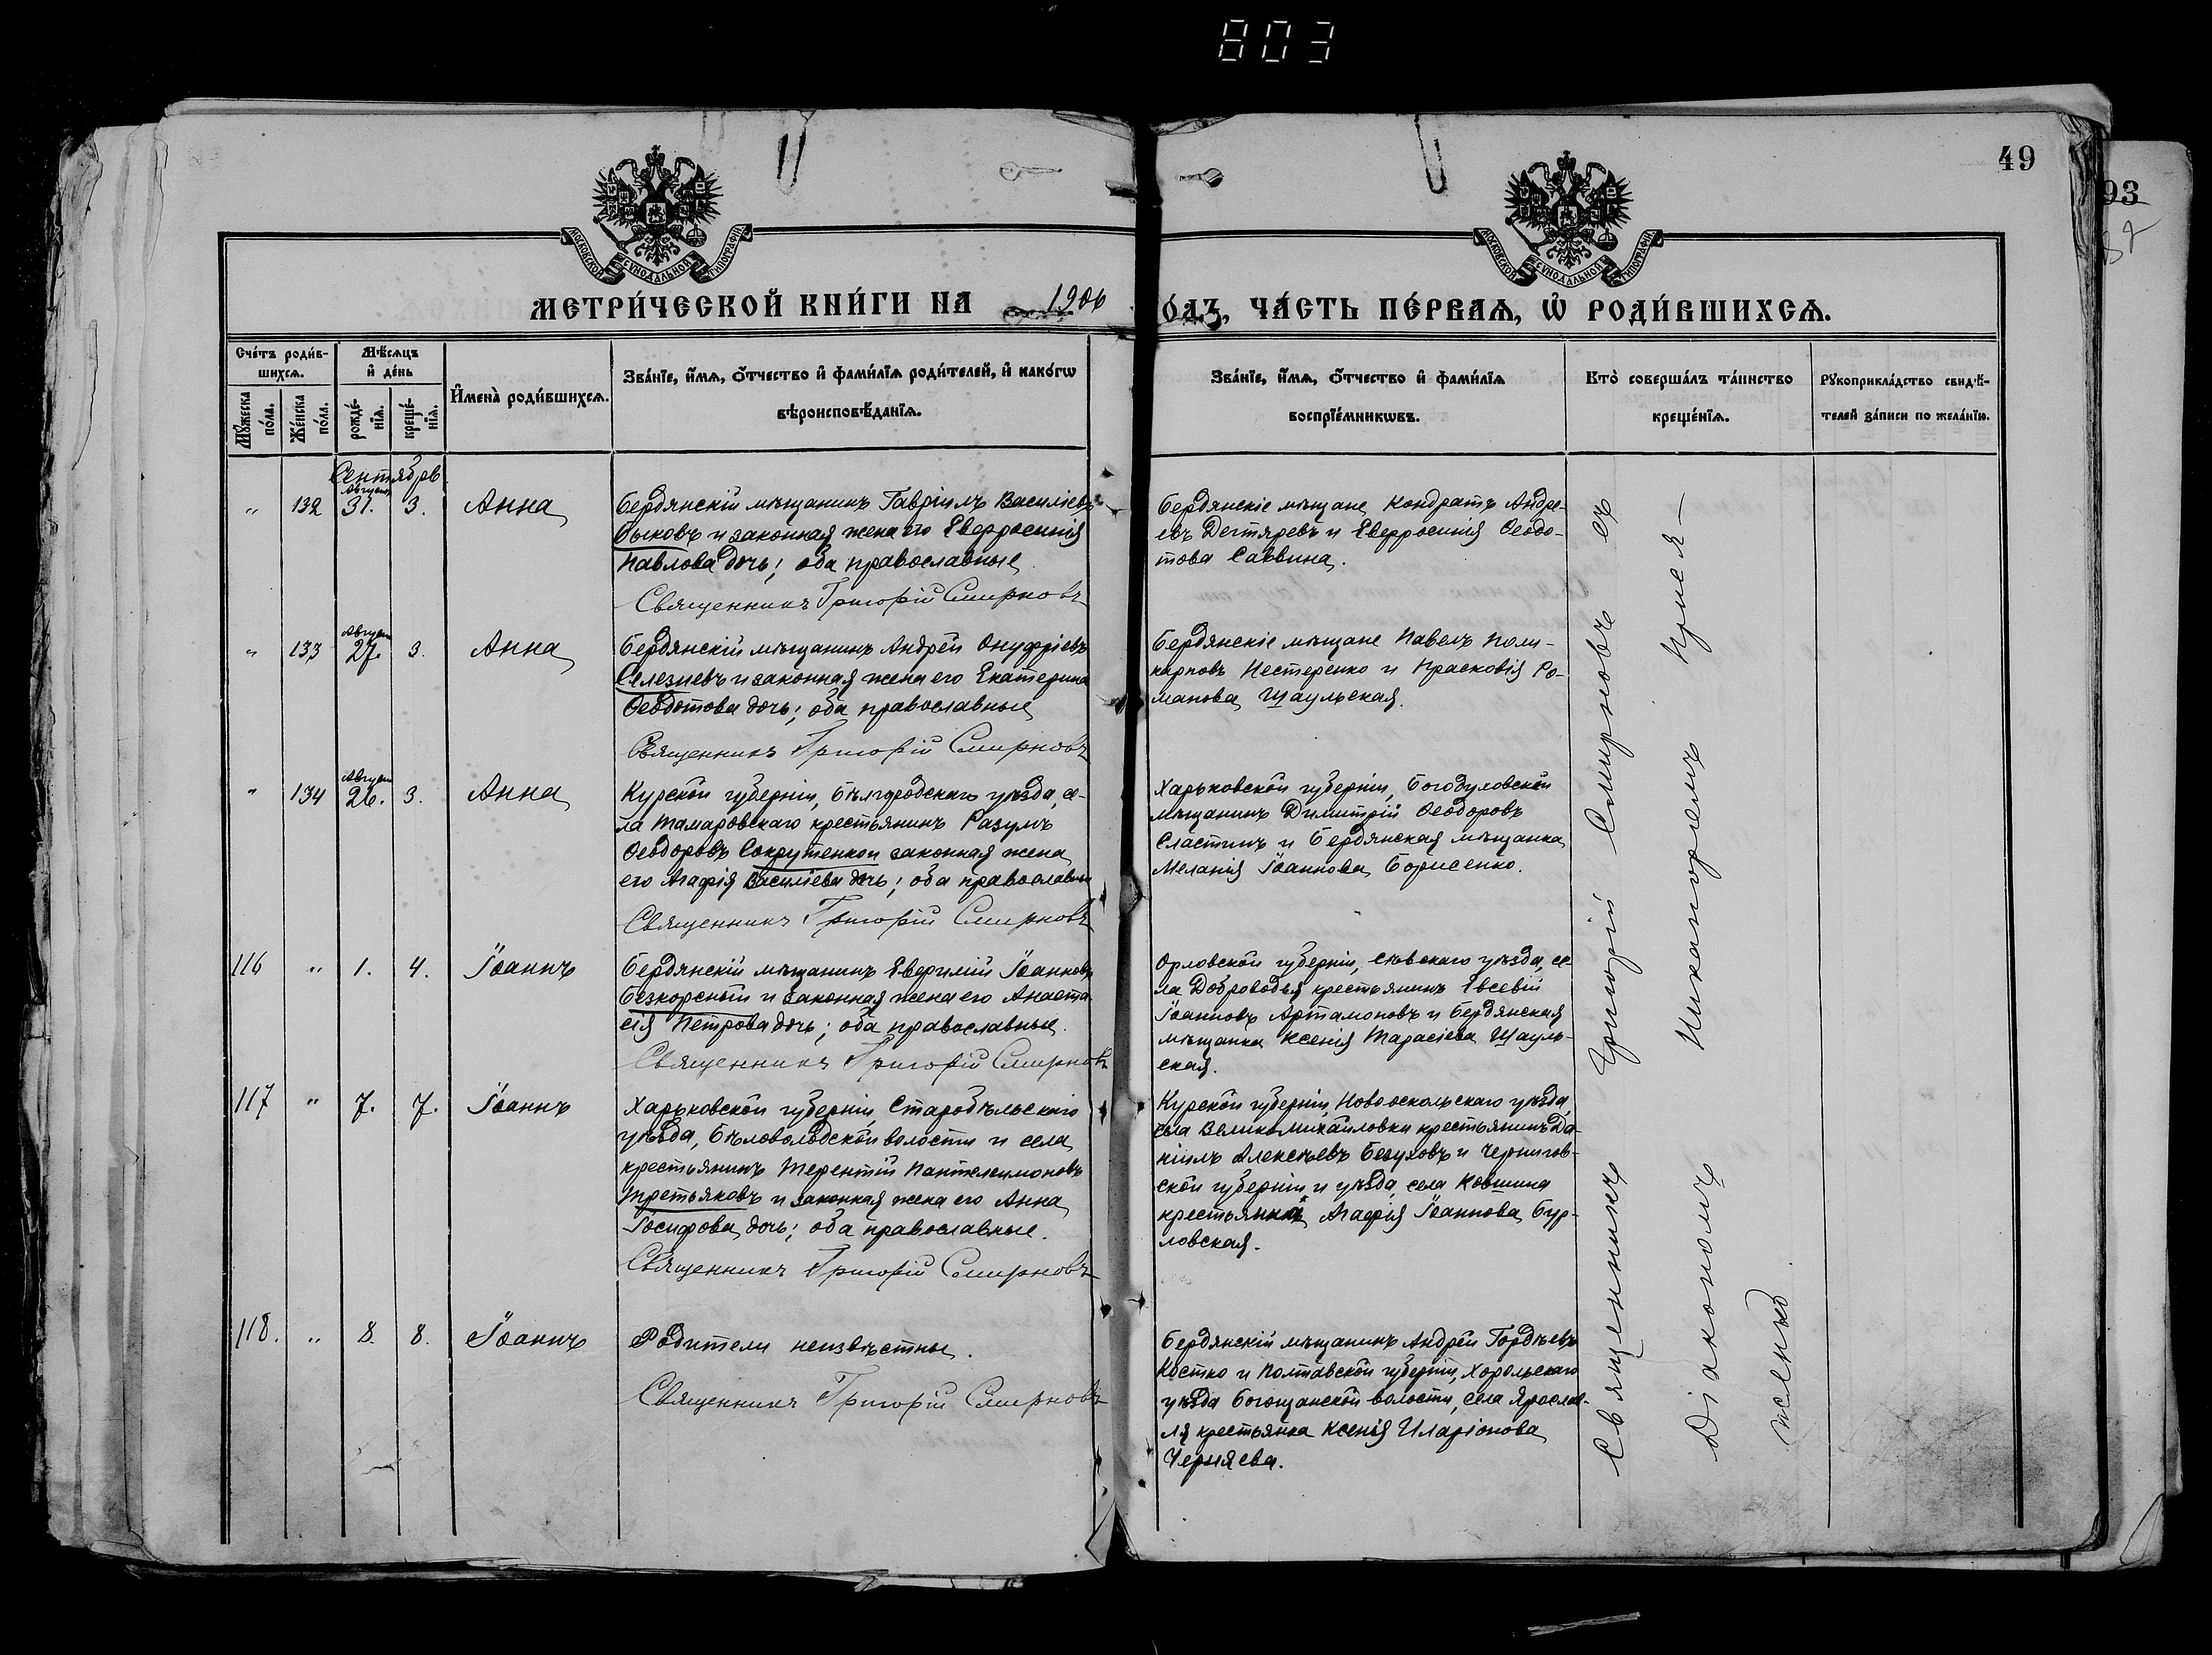 803
49
93
МОСКОВСКОЙ СУНОДАЛЬНОЙ ТИПОГРАФІИ
МОСКОВСКОЙ СУНОДАЛЬНОЙ ТИПОГРАФІИ
МЕТРИ́ЧЕСКОЙ КНИ́ГИ НА 1906
О́ДЪ, ЧА́СТЬ ПЕ́РВАѦ, Ѡ҆ РОДИ́ВШИХСѦ.
Сче́тъ роди́в-
шихсѧ.
Мѣ́сѧцъ
и҆ де́нь
Му́жеска
по́ла.
Же́нска
по́ла.
рожде́-
нїѧ.
креще́-
нїѧ.
И҆мена̀ роди́вшихсѧ.
Зва́нїе, и҆́мѧ, ѻ҆́тчество и҆ фами́лїѧ роди́телей, и҆ како́гѡ
вѣроисповѣ́данїѧ.
Зва́нїе, и҆́мѧ, ѻ҆́тчество и҆ фами́лїѧ
воспрїе́мникѡвъ.
Кто̀ соверша́лъ та́инство
креще́нїѧ.
Рꙋкоприкла́дство свидѣ́-
телей за́писи по жела́нїю.
Сентябрь
" 132 Августъ 31. 3. Анна
Бердянскій мѣщанинъ Гавріилъ Василіевъ
Быковъ и законная жена его Евфросинія
Павлова дочь; оба православные
Священникъ Григорій Смирновъ
Бердянскіе мѣщане Кондратъ Андре-
евъ Дегтяревъ и Евфросинія Ѳеодо-
това Саввина.
" 133 Август 27. 3. Анна
Бердянскій мѣщанинъ Андрей Онуфріевъ
Селезневъ и законная жена его Екатерина
Ѳеодотова дочь; оба православные
Священникъ Григорій Смирновъ
Бердянскіе мѣщане Павелъ Поли-
карповъ Нестеренко и Прасковія Ро-
манова Шаульская.
" 134 Август 26. 3. Анна
Курской губерніи, Бѣлгородскаго уѣзда, се-
ла Тамаровскаго крестьянинъ Разумъ
Ѳеодоровъ Сокрутенко и законная жена
его Агафія Василіева дочь; оба православные
Священникъ Григорій Смирновъ
Харьковской губерніи, Богодуховской
мѣщанинъ Димитрій Ѳеодоровъ
Сластинъ и Бердянская мѣщанка
Меланія Іоаннова Борисенко.
116 " 1. 4. Іоаннъ
Бердянскій мѣщанинъ Евфимій Іоанновъ
Безкорсный и законная жена его Анаста
сія Петрова дочь; оба православные.
Священникъ Григорій Смирновъ
Орловской губерніи, Сѣвскаго уѣзда, се-
ла Доброводья крестьянинъ Евсевій
Іоанновъ Артамоновъ и Бердянская
мѣщанка Ксенія Тарасіева Шауль-
ская.
117 " 7. 7. Іоаннъ
Харьковской губерніи, Старобѣльскаго
уѣзда, Бѣловодской волости и села
крестьянинъ Терентій Пантелеимоновъ
Третьяковъ и законная жена его Анна
Іосифова дочь; оба православные.
Священникъ Григорій Смирновъ
Курской губерніи, Новооскольскаго уѣзда,
села ВеликоМихайловки крестьянинъ Да-
ніилъ Алексѣевъ Безуховъ и Чернигов-
ской губерніи и уѣзда, села Ковшина
крестьянка Агафія Іоаннова Бур-
ловская.
118. " 8. 8. Іоаннъ
Родители неизвѣстны.
Священникъ Григорій Смирновъ
Бердянскій мѣщанинъ Андрей Гордѣевъ
Костко и Полтавской губерніи, Хорольскаго
уѣзда Богощанской волости, села Ярослав-
ля крестьянка Ксенія Иларіонова
Черняева.
Священникъ Григорій Смирновъ съ
Діакономъ Никаноромъ